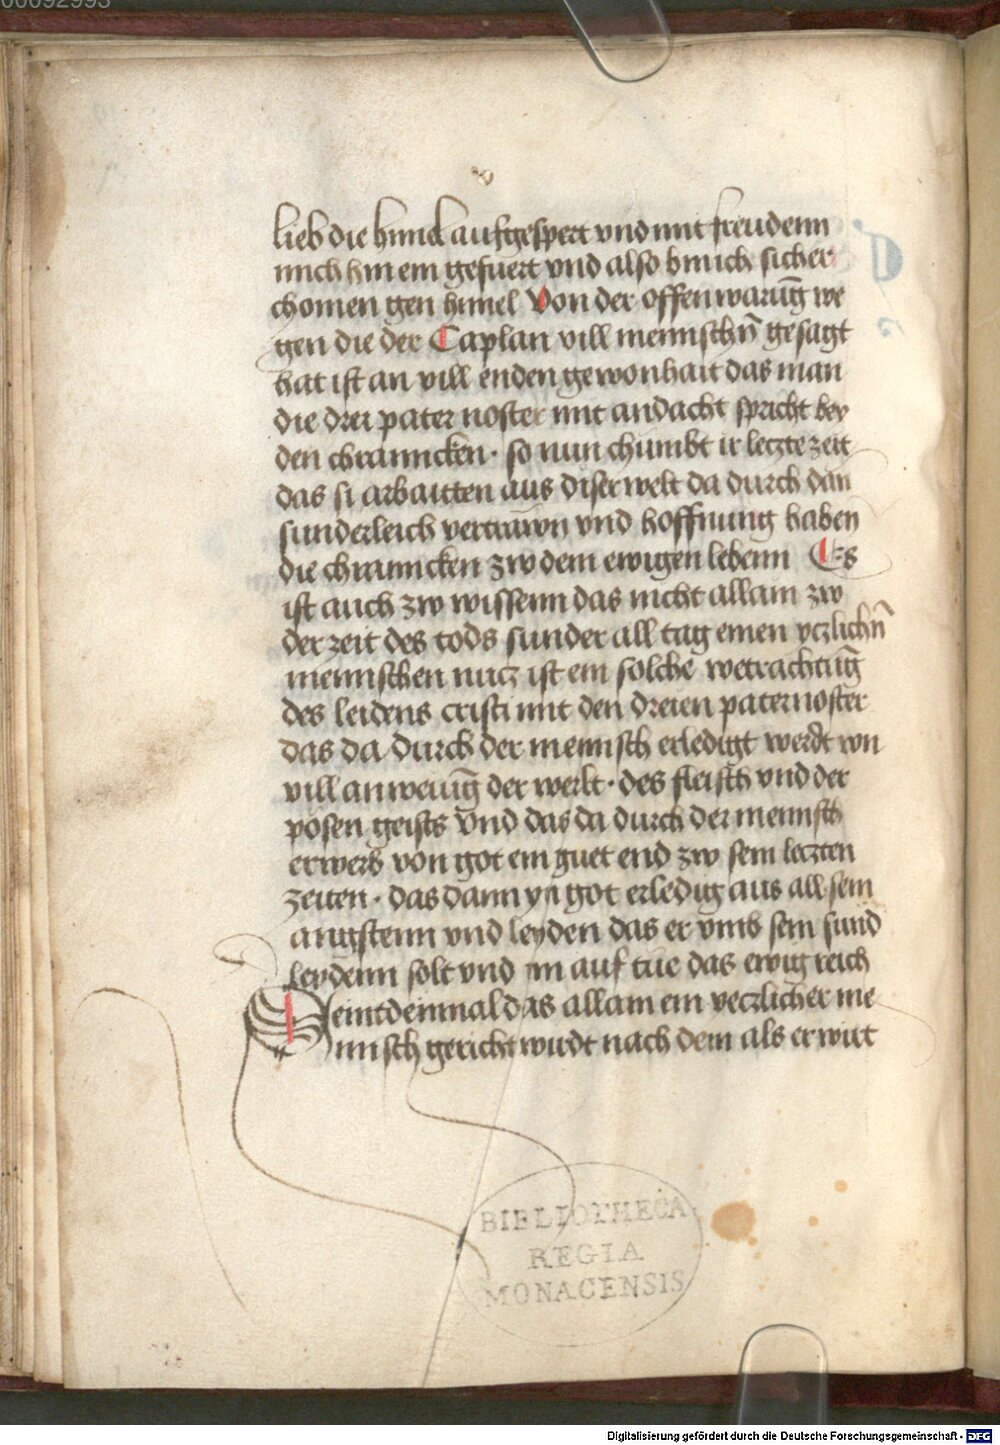 00092993
lieb die himel aufgespert vnd mit freudenn
mich hin ein gefuert vnd also bin ich sicher
chomen gen himel Von der offenwarūg we
gen die der Caplan vill mennschn̄ gesagt
hat ist an vill enden gewonhait das man
die drei pater noster mit andacht spricht bey
den chranncken · so nun chumbt ir leczte zeit
das si arbaitten aus diser welt da durch dan
sunderleich vertrawn vnd hoffnung haben
die chranncken zw dem ewigen lebenn Es
ist auch zw wissenn das nicht allain zw
der zeit des tods sunder all tag einen yczlichn̄
mennschen nucz ist ein solche wetrachtūg
des leidens cristi mit den dreien paternoster
das da durch der mennsch erledigt werdt von
vill anweiūg der werlt · des fleisch vnd der
pösen geists Vnd das da durch der mennsch
erwerb von got ein guet end zw sein leczten
zeiten · das dann yn got erledig aus all sein
angstenn vnd leyden das er vmb sein sund
leydenn solt vnd im auf tüe das ewig reich
Seintdeinmal das allain ein yeczlicher me
nnsch gericht wirdt nach dem als er wirt
BIBLIOTHECA
REGIA
MONACENSIS
Digitalisierung gefördert durch die Deutsche Forschungsgemeinschaft - DFG